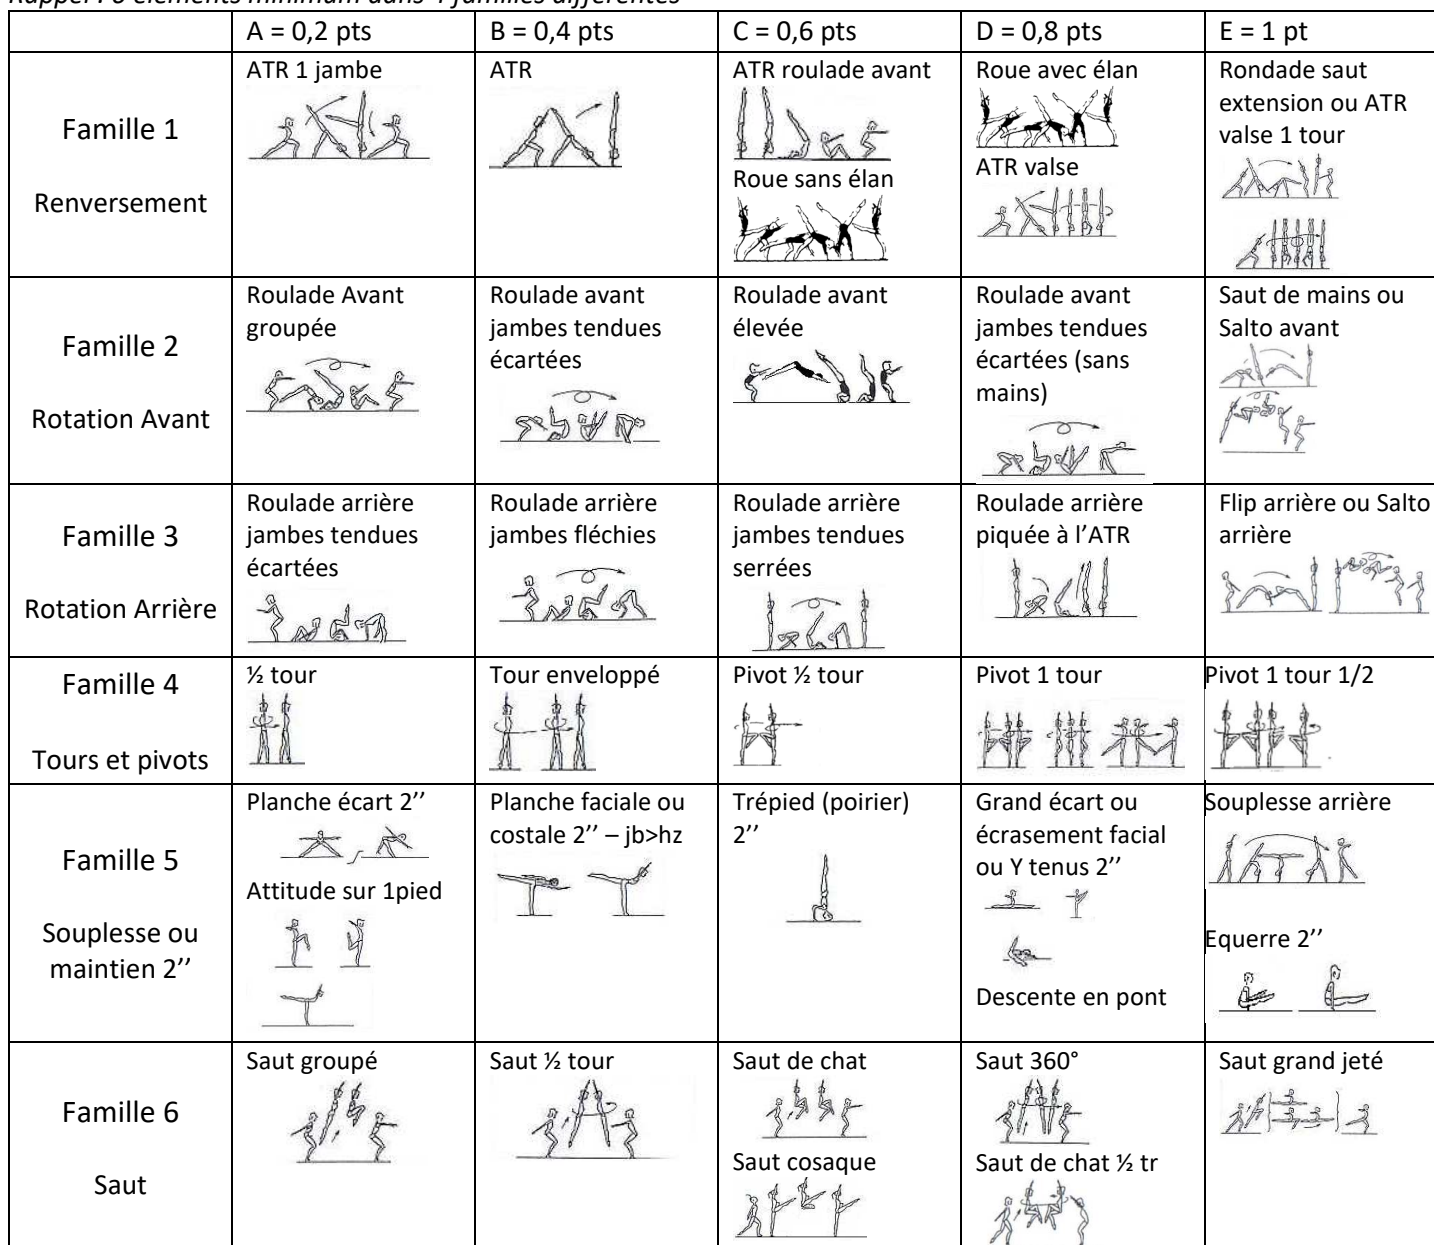 Rappel : 6 éléments minimum dans 4 familles différentes
A = 0,2 pts
B = 0,4 pts
C = 0,6 pts
D = 0,8 pts
E = 1 pt
Famille 1
Renversement
ATR 1 jambe
ATR
ATR roulade avant
Roue sans élan
Roue avec élan
ATR valse
Rondade saut
extension ou ATR
valse 1 tour
Famille 2
Rotation Avant
Roulade Avant
groupée
Roulade avant
jambes tendues
écartées
Roulade avant
élevée
Roulade avant
jambes tendues
écartées (sans
mains)
Saut de mains ou
Salto avant
Famille 3
Rotation Arrière
Roulade arrière
jambes tendues
écartées
Roulade arrière
jambes fléchies
Roulade arrière
jambes tendues
serrées
Roulade arrière
piquée à l’ATR
Flip arrière ou Salto
arrière
Famille 4
Tours et pivots
½ tour
Tour enveloppé
Pivot ½ tour
Pivot 1 tour
Pivot 1 tour 1/2
Famille 5
Souplesse ou
maintien 2’’
Planche écart 2’’
Attitude sur 1pied
Planche faciale ou
costale 2’’ – jb>hz
Trépied (poirier)
2’’
Grand écart ou
écrasement facial
ou Y tenus 2’’
Descente en pont
Souplesse arrière
Equerre 2’’
Famille 6
Saut
Saut groupé
Saut ½ tour
Saut de chat
Saut cosaque
Saut 360°
Saut de chat ½ tr
Saut grand jeté